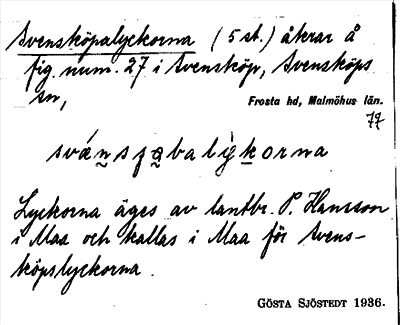 Svensköpalyckorna (5 st.) åkrar å
fig. num. 27 i Svensköp, Svensköps
sn,
Frosta hd, Malmöhus län.
77
svánsfəbalìgkorna
Lyckorna äges av lantbr. P. Hansson
i Maa och kallas i Maa för Svens-
köpslyckorna.
GÖSTA SJÖSTEDT 1936.